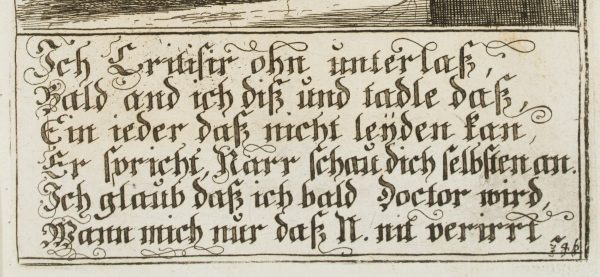 Ich Critisir ohn unterlaß,
Bald and ich diß und tadle daß,
Ein ieder daß nicht leÿden kan,
Er spricht, Narr schau dich selbsten an.
Ich glaub daß ich bald Doctor wird,
Wann mich nur daß N. nit verirrt